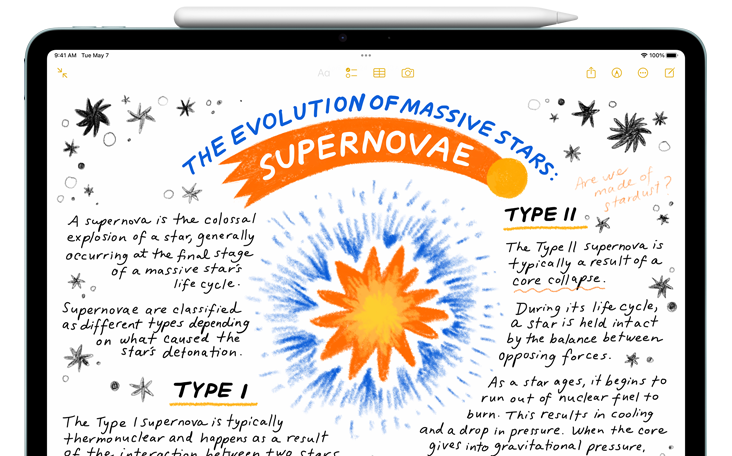 9:41 AM Tue May 7
100%
Aa
THE EVOLUTION OF MASSIVE STARS:
SUPERNOVAE
Are we
made of
stardust?
A supernova is the colossal
explosion of a star, generally
occurring at the final stage
of a massive star's
life cycle.
Supernovae are classified
as different types depending
on what caused the
star's detonation.
TYPE I
The Type I Supernova is typically
thermonuclear and happens as a result
of the interaction between two stars
TYPE II
The Type II supernova is
typically a result of a
core collapse.
During its life cycle,
a star is held intact
by the balance between
opposing forces.
As a star ages, it begins to
run out of nuclear fuel to
burn. This results in cooling
and a drop in pressure. When the core
gives into gravitational pressure,